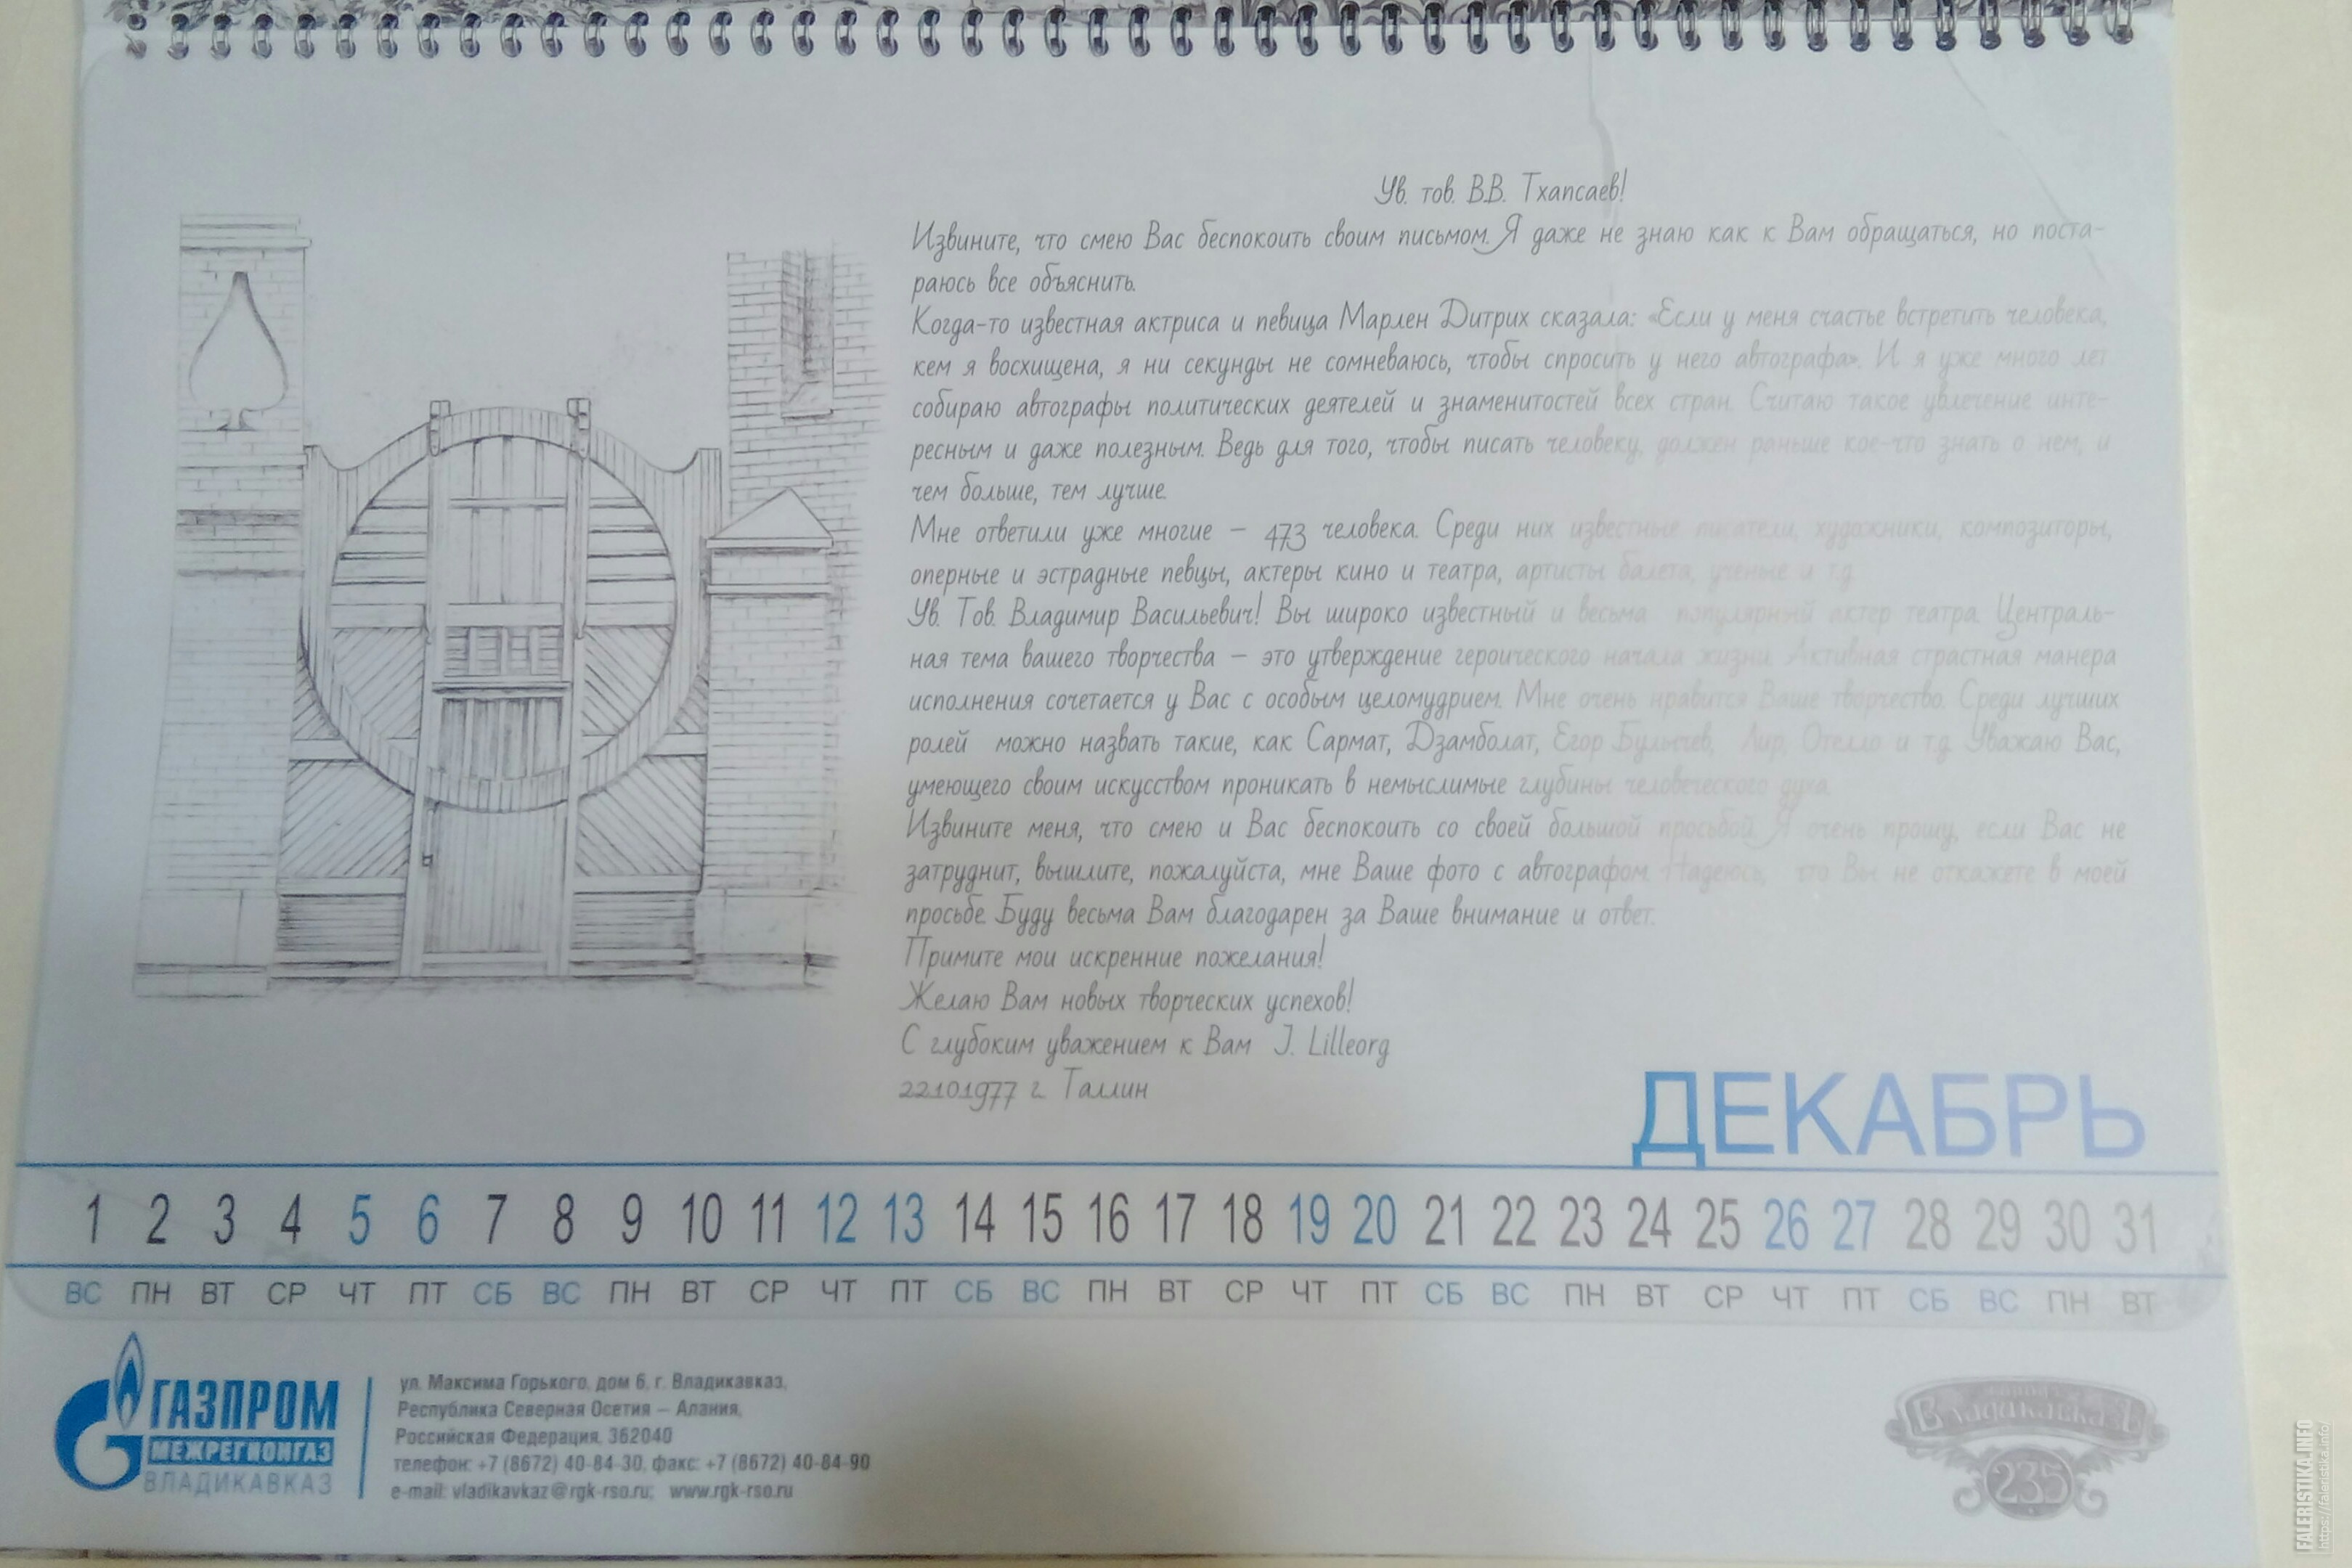 Ув. тов. В.В. Тхапсаев!
Извините, что смею Вас беспокоить своим письмом. Я даже не знаю как к Вам обращаться, но поста-
раюсь все объяснить.
Когда-то известная актриса и певица Марлен Дитрих сказала: «Если у меня счастье встретить человека,
кем я восхищена, я ни секунды не сомневаюсь, чтобы спросить у него автографа». И я уже много лет
собираю автографы политических деятелей и знаменитостей всех стран. Считаю такое увлечение инте-
ресным и даже полезным. Ведь для того, чтобы писать человеку, должен раньше кое-что знать о нем, и
чем больше, тем лучше.
Мне ответили уже многие – 473 человека. Среди них известные писатели, художники, композиторы,
оперные и эстрадные певцы, актеры кино и театра, артисты балета, ученые и т.д.
Ув. Тов. Владимир Васильевич! Вы широко известный и весьма популярный актер театра. Централь-
ная тема вашего творчества – это утверждение героического начала жизни. Активная страстная манера
исполнения сочетается у Вас с особым целомудрием. Мне очень нравится Ваше творчество. Среди лучших
ролей можно назвать такие, как Сармат, Дзамболат, Егор Булычев, Лир, Отелло и т.д. Уважаю Вас,
умеющего своим искусством проникать в немыслимые глубины человеческого духа.
Извините меня, что смею и Вас беспокоить со своей большой просьбой. Я очень прошу, если Вас не
затруднит, вышлите, пожалуйста, мне Ваше фото с автографом. Надеюсь, что Вы не откажете в моей
просьбе. Буду весьма Вам благодарен за Ваше внимание и ответ.
Примите мои искренние пожелания!
Желаю Вам новых творческих успехов!
С глубоким уважением к Вам J. Lilleorg
22.10.1977 г. Таллин
ДЕКАБРЬ
1 2 3 4 5 6 7 8 9 10 11 12 13 14 15 16 17 18 19 20 21 22 23 24 25 26 27 28 29 30 31
ВС ПН ВТ СР ЧТ ПТ СБ ВС ПН ВТ СР ЧТ ПТ СБ ВС ПН ВТ СР ЧТ ПТ СБ ВС ПН ВТ СР ЧТ ПТ СБ ВС ПН ВТ
ГАЗПРОМ
МЕЖРЕГИОНГАЗ
ВЛАДИКАВКАЗ
ул. Максима Горького, дом 6, г. Владикавказ,
Республика Северная Осетия – Алания,
Российская Федерация, 362040
телефон: +7 (8672) 40-84-30, факс: +7 (8672) 40-84-90
e-mail: vladikavkaz@rgk-rso.ru; www.rgk-rso.ru
ВладикавказЪ
235
FALERISTIKA.INFO
https://faleristika.info/